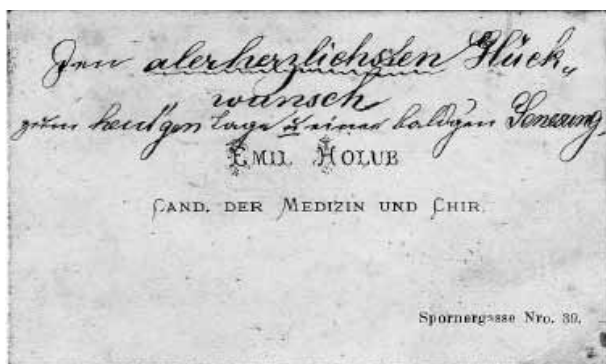 Den alerherzlichsten Glück„
wunsch
zum heut'gen Tage & einer bald'gen Genesung
EMIL HOLUB
CAND. DER MEDIZIN UND CHIR.
Spornergasse Nro. 39.